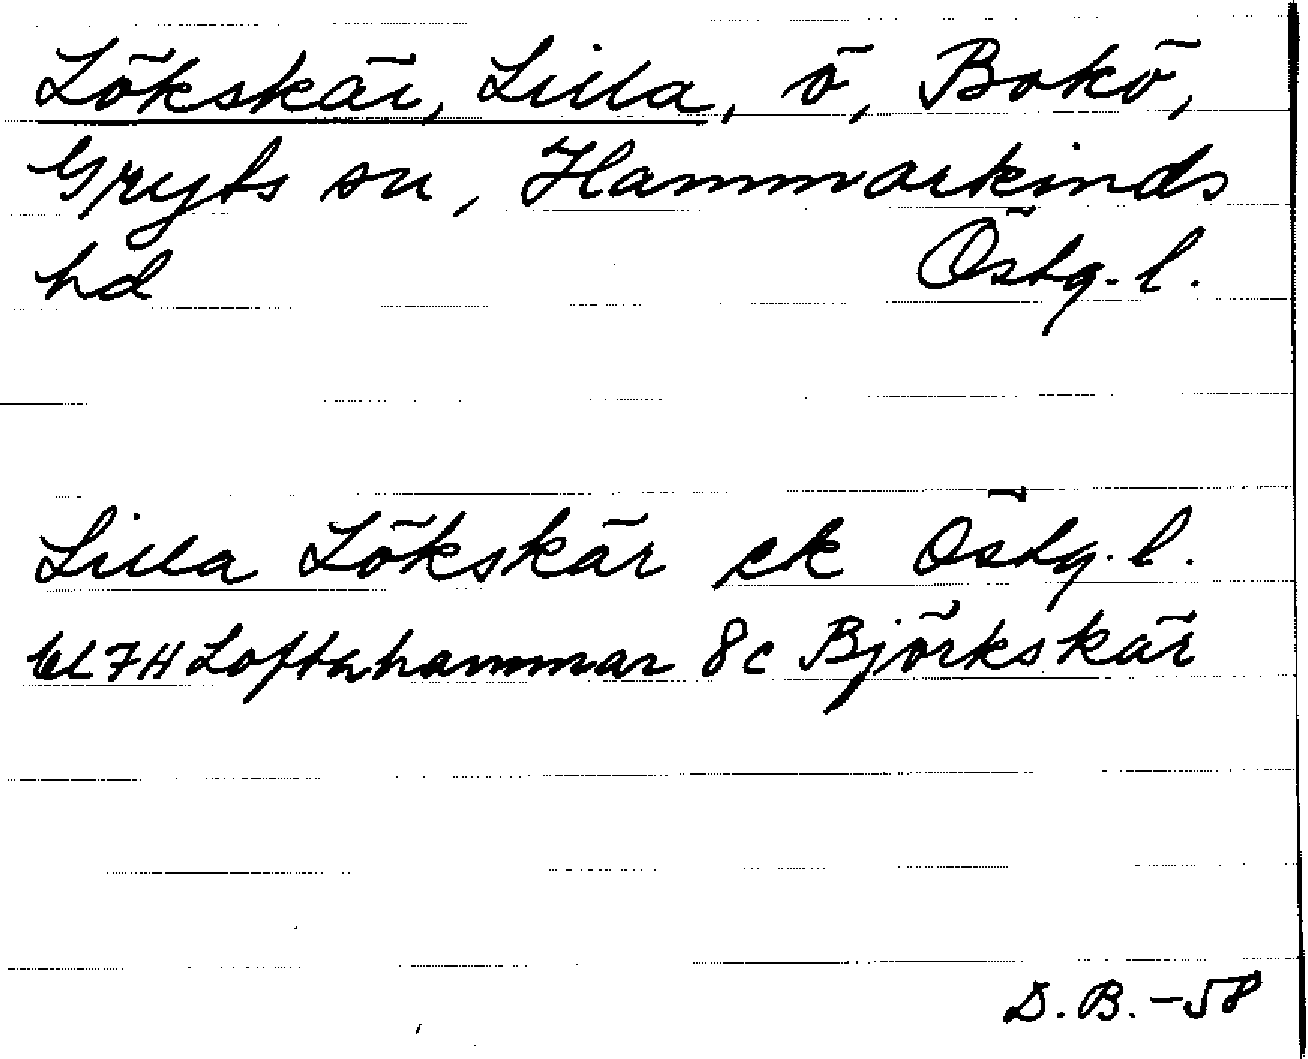 Lökskär, Lilla, ö, Bokö,
Gryts sn, Hammarkinds
hd Östg. l.
Lilla Lökskär ek Östg. l.
7H Loftahammar 8c Björkskär
D.B. -58